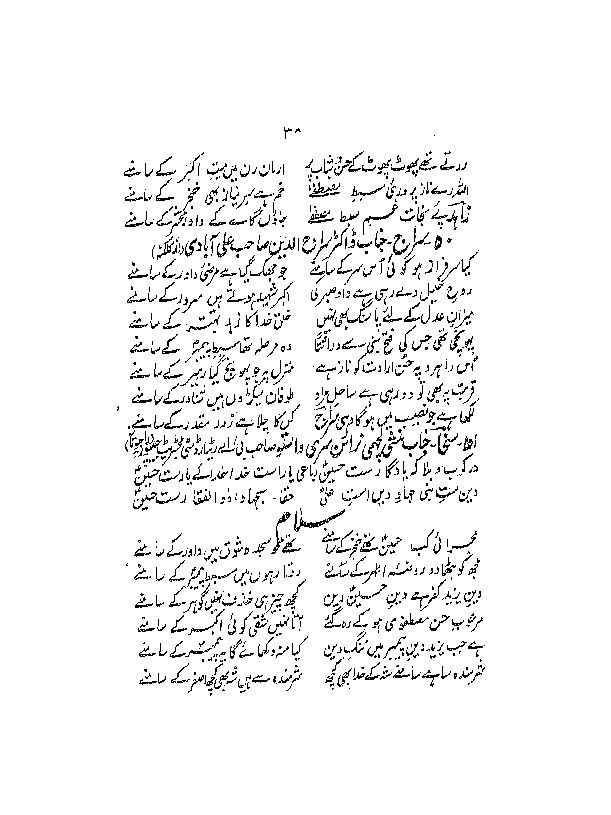 ۳۸
روتے تھے پھوٹ پھوٹ کے حسن شباب پر ارمان رن میں میت اکبر کے سامنے
اللہ رے ناز پروری سبط مصطفےٰ خم ہے سر نیاز بھی خنجر کے سامنے
زاہد پئے نجات غم سبط مصطفےٰ جاؤں گا لے کے داور محشر کے سامنے
۵۰ سراج - جناب ڈاکٹر سراج الدین صاحب علی آبادی (از کلکتہ)
کیا سرفراز ہو کوئی اُس سر کے سامنے جو جھک گیا ہے مرضی داور کے سامنے
روح خلیل دے رہی ہے داد صبر کی اکبر شہید ہوتے ہیں سرور کے سامنے
میزان عدل کے لئے پاسنگ بھی نہیں خلق خدا کا زہد بہتر کے سامنے
پہونچی تھی جس کی فتح نبی سے وراثتاً وہ مرحلہ تھا سبط پیمبر کے سامنے
اُس راہرو پہ حسن ارادت کو ناز ہے منزل پر جو پہونچ گیا رہبر کے سامنے
قربت پہ بھی تو دور رہی ہے ساحل مراد طوفان سیکڑوں ہیں شناور کے سامنے
لکھا ہے جو نصیب میں ہوگا وہی سراج کس کا چلا ہے زور مقدر کے سامنے
۵۱ - سخا - جناب منشی لچھمی نرائن سری واستو صاحب بی اے ریٹائرڈ ڈسٹرکٹ
در کرب و بلا کہ یادگار ست حسینؑ باغی یاراست خدا خدا کے یارست حسینؑ
دین ست نبی جہاد دیں است علیؑ حقا - سجہاد ذوالفقار ست حسینؑ
سلام
مجرائی کب حسینؑ تھے خنجر کے سامنے تھے محو سجدہ شوق میں داور کے سامنے
مجھ کو بٹھا دو روضۂ اطہر کے سامنے روتا رہوں میں سبط پیمبر کے سامنے
دین یزید کفر ہے دین حسینؑ دین کچھ چیز ہی خذف نہیں گوہر کے سامنے
مرعوب حسن مصطفوی ہو کے رہ گئے آتا نہیں شقی کوئی اکبر کے سامنے
ہے حب یزید دین پیمبر میں ننگ دین کیا منہ دکھائے گا یہ پیمبر کے سامنے
شرمندہ سامنے سامنے شہ کے خدا بھی کچھ شرمندہ سے ہیں شہ بھی کچھ اصغر کے سامنے